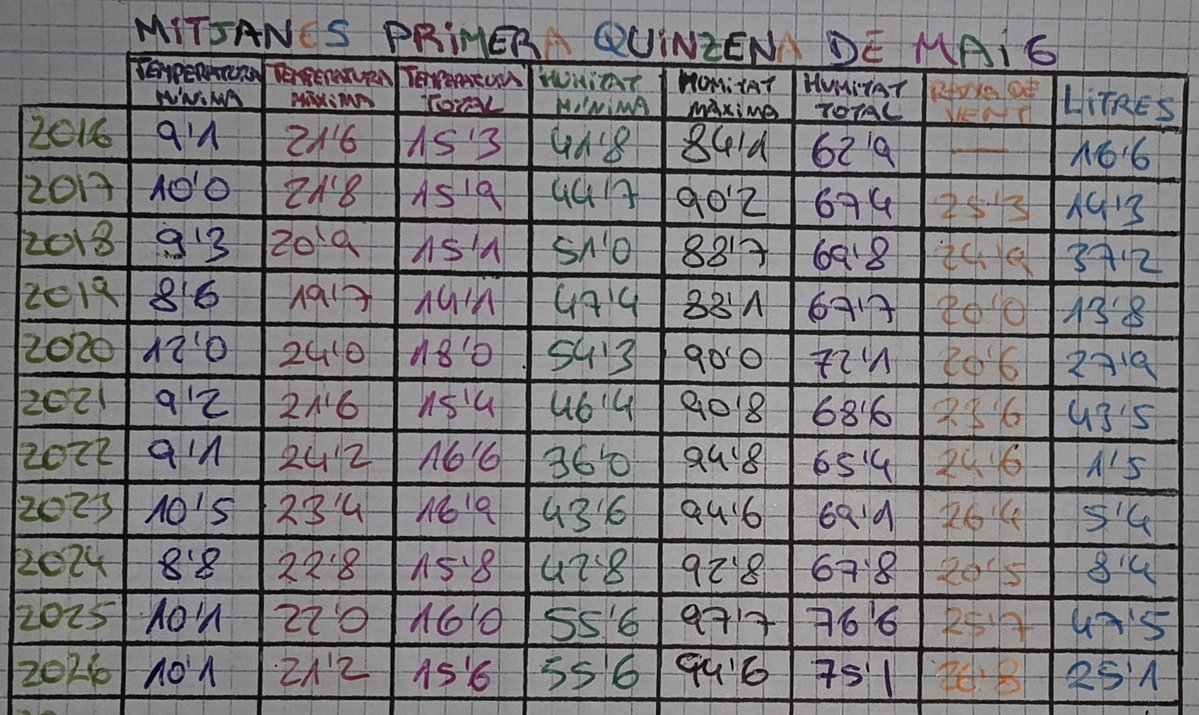 MITJANES PRIMERA QUINZENA DE MAIG
TEMPERATURA MÍNIMA TEMPERATURA MÀXIMA TEMPERATURA TOTAL HUMITAT MÍNIMA HUMITAT MÀXIMA HUMITAT TOTAL RATXA DE VENT LITRES
2016 9'1 21'6 15'3 41'8 84'1 62'9 — 16'6
2017 10'0 21'8 15'9 44'7 90'2 67'4 25'3 14'3
2018 9'3 20'9 15'1 51'0 88'7 69'8 24'9 37'2
2019 8'6 19'7 14'1 47'4 88'1 67'7 20'0 13'8
2020 12'0 24'0 18'0 54'3 90'0 72'1 20'6 27'9
2021 9'2 21'6 15'4 46'4 90'8 68'6 23'6 43'5
2022 9'1 24'2 16'6 36'0 94'8 65'4 24'6 1'5
2023 10'5 23'4 16'9 43'6 94'6 69'1 26'4 5'4
2024 8'8 22'8 15'8 42'8 92'8 67'8 20'5 8'4
2025 10'1 22'0 16'0 55'6 97'7 76'6 25'7 47'5
2026 10'1 21'2 15'6 55'6 94'6 75'1 26'8 25'1